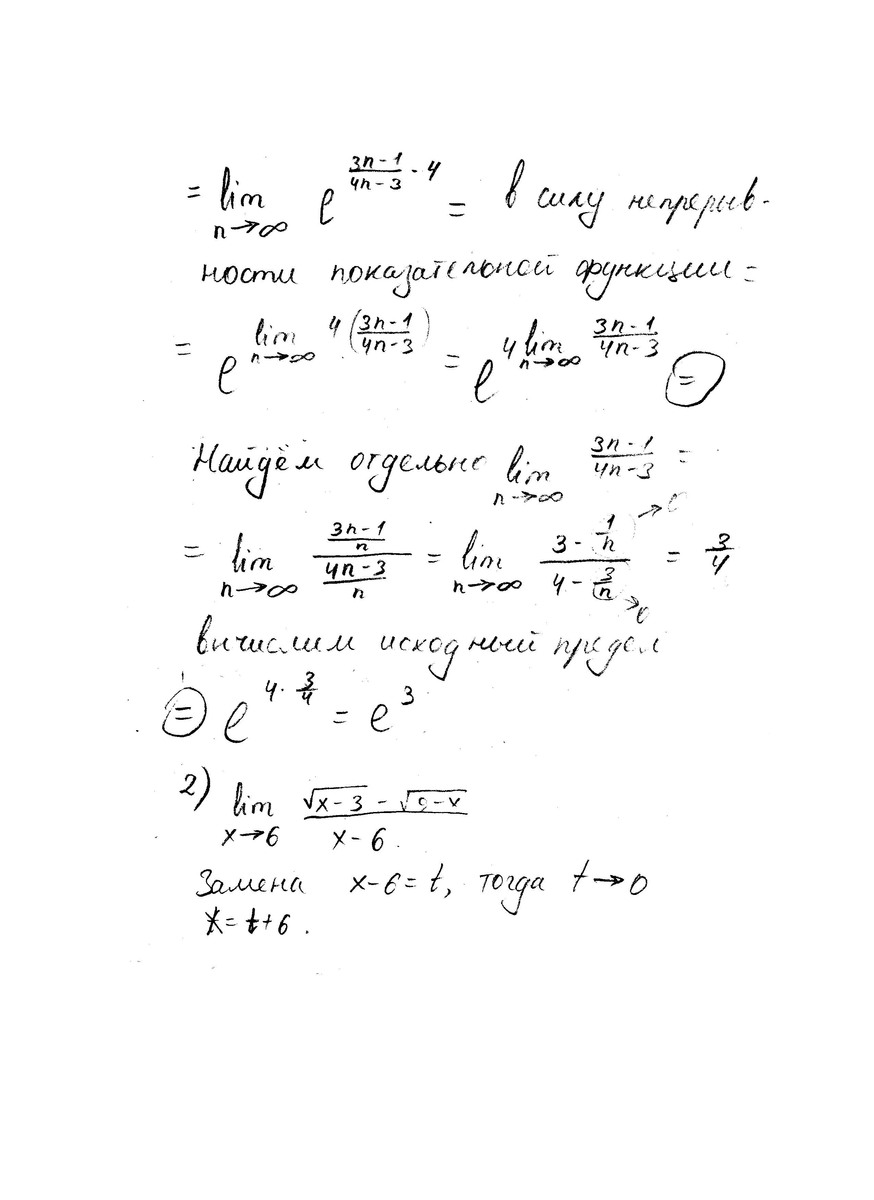 = lim n→∞ e^((3n-1)/(4n-3) · 4) = в силу непрерыв-
ности показательной функции =
= e^(lim n→∞ 4((3n-1)/(4n-3))) = e^(4 lim n→∞ (3n-1)/(4n-3)) =
Найдём отдельно lim n→∞ (3n-1)/(4n-3) =
= lim n→∞ ((3n-1)/n)/((4n-3)/n) = lim n→∞ (3 - 1/n →0)/(4 - 3/n →0) = 3/4
вычислим исходный предел
= e^(4 · 3/4) = e^3
2) lim x→6 (√(x-3) - √(9-x))/(x-6).
Замена x-6=t, тогда t→0
x=t+6.